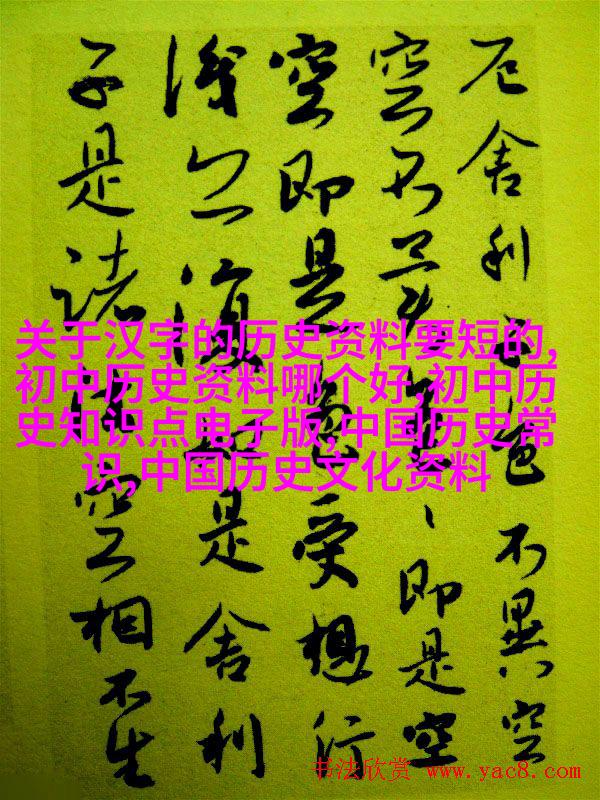 厄舍利子色不異空
空不異色、即是空
空即是色受想行
識亦復如是舍利
子是諸法空相不生
关于汉字的历史资料要短的,
初中历史资料哪个好,初中历
史知识点电子版,中国历史常
识,中国历史文化资料
书法欣赏 www.yac8.com